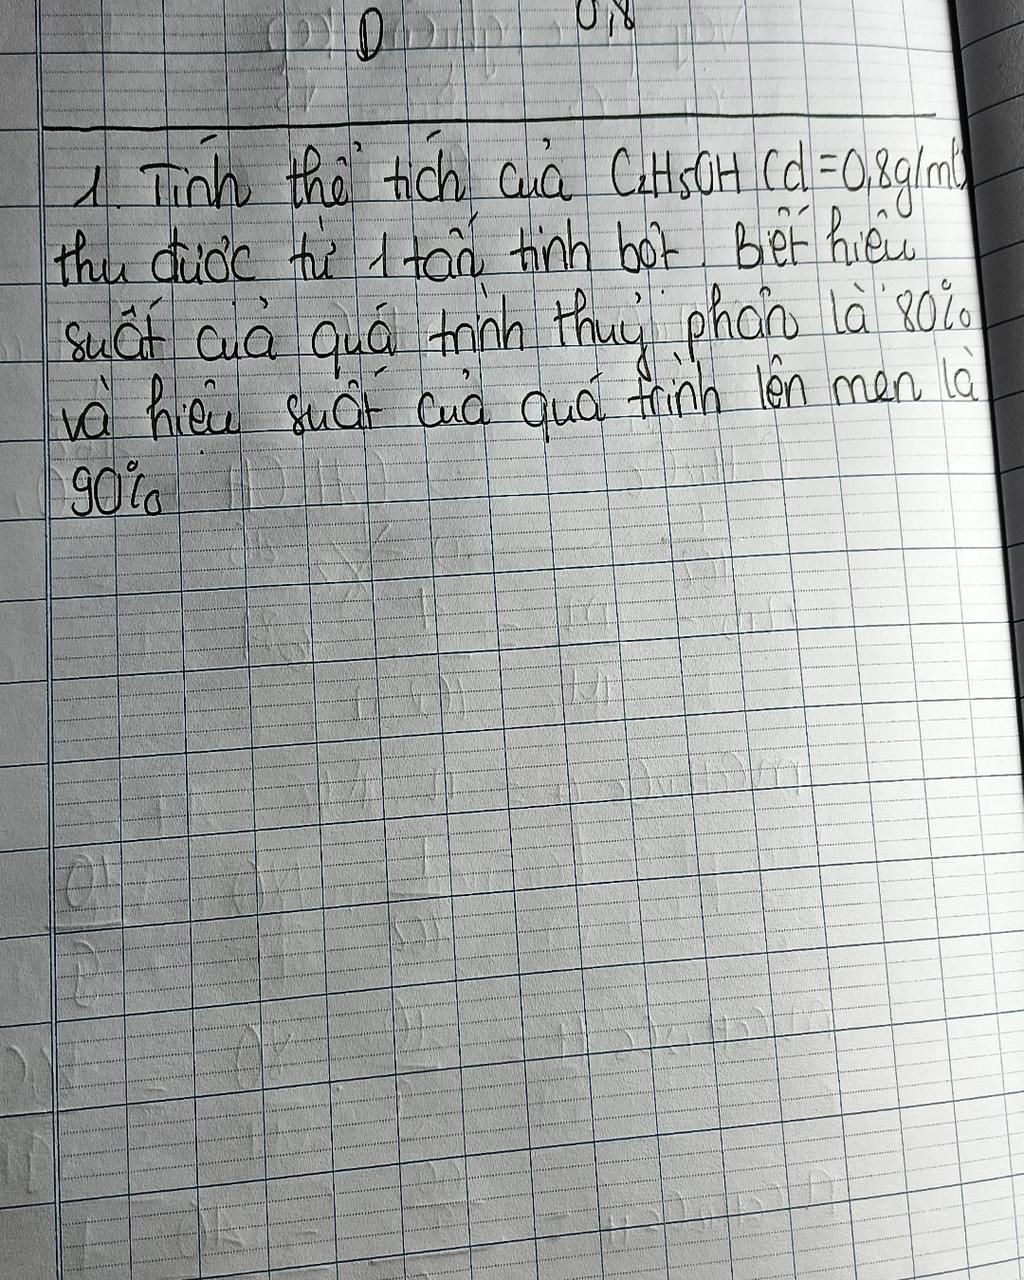 D 0,8
1. Tính thể tích của C₂H₅OH (d = 0,8g/ml)
thu được từ 1 tấn tinh bột. Biết hiệu
suất của quá trình thuỷ phân là 80%
và hiệu suất của quá trình lên men là
90%